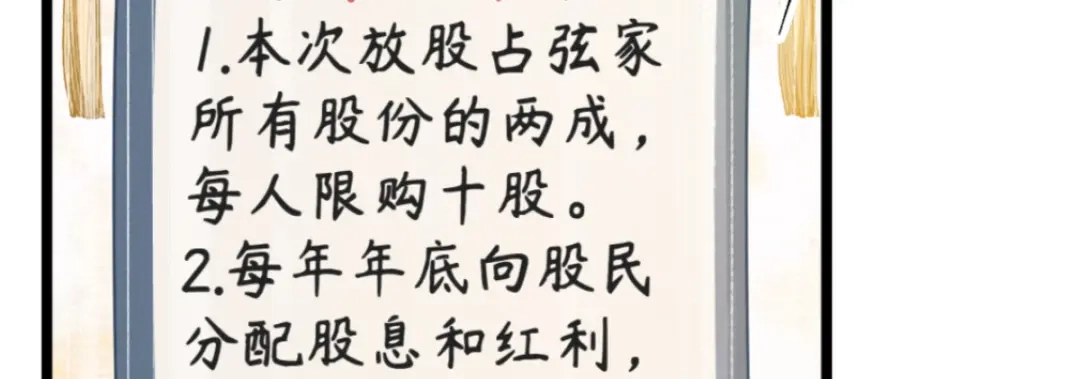 1.本次放股占弦家
所有股份的两成，
每人限购十股。
2.每年年底向股民
分配股息和红利，